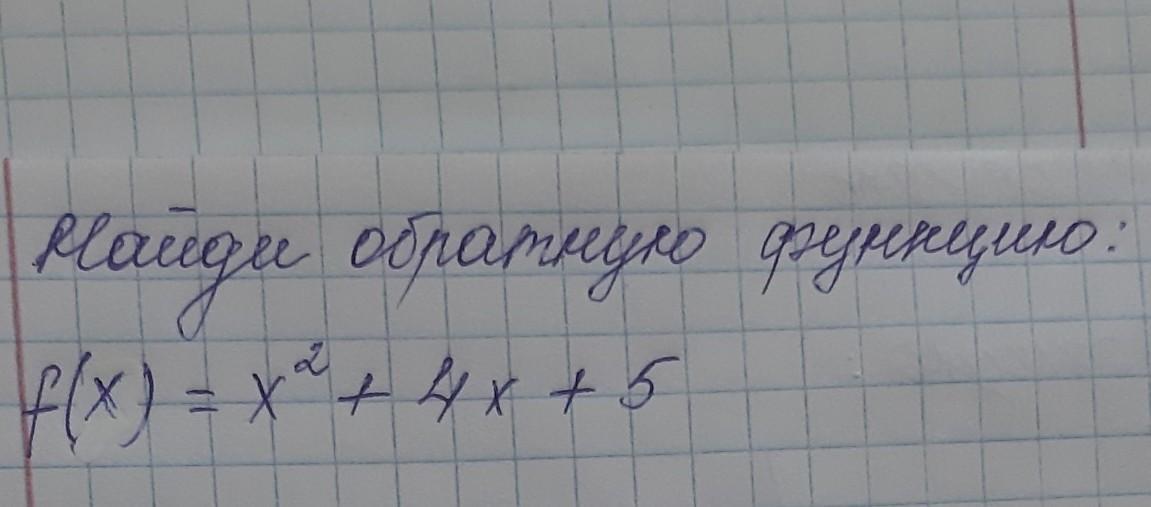 Найди обратную функцию:
f(x) = x² + 4x + 5